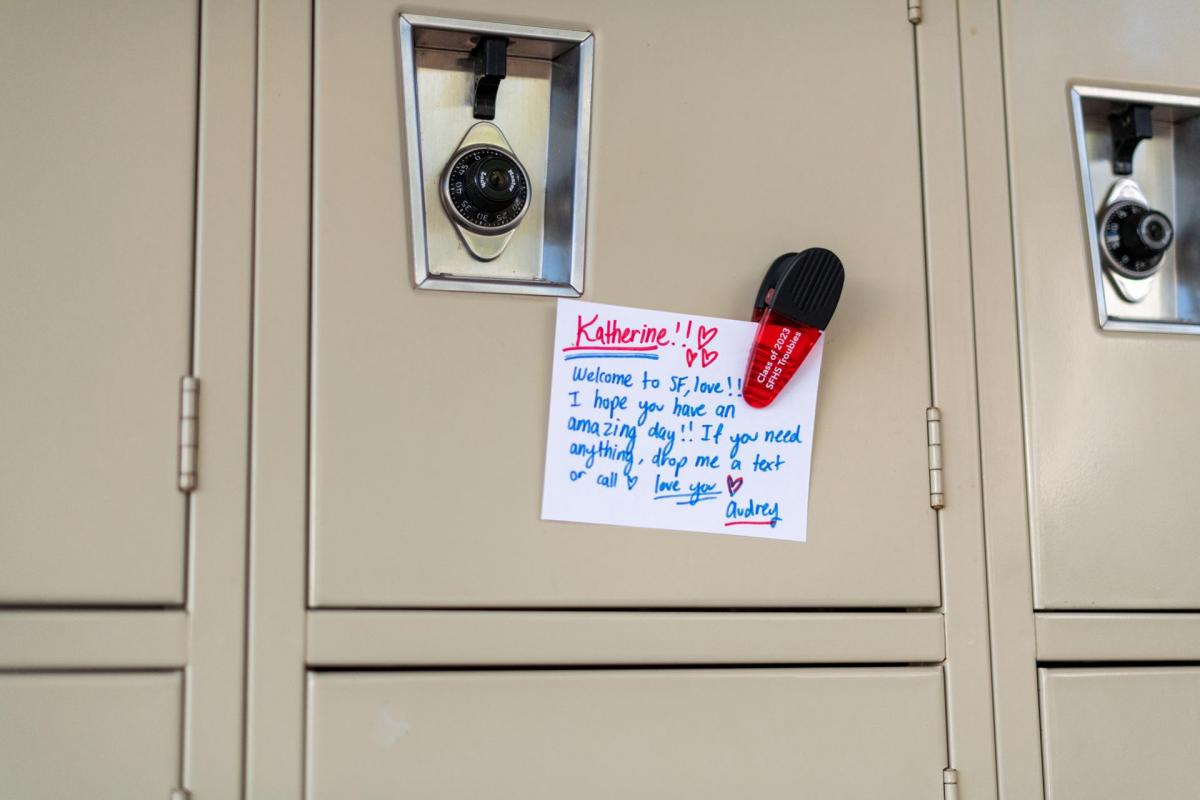 Katherine!!
Welcome to SF, love!!
I hope you have an
amazing day!! If you need
anything, drop me a text
or call love you
Audrey
Class of 2023
SFHS Troubies
0
45
40
35
30
25
20
Master